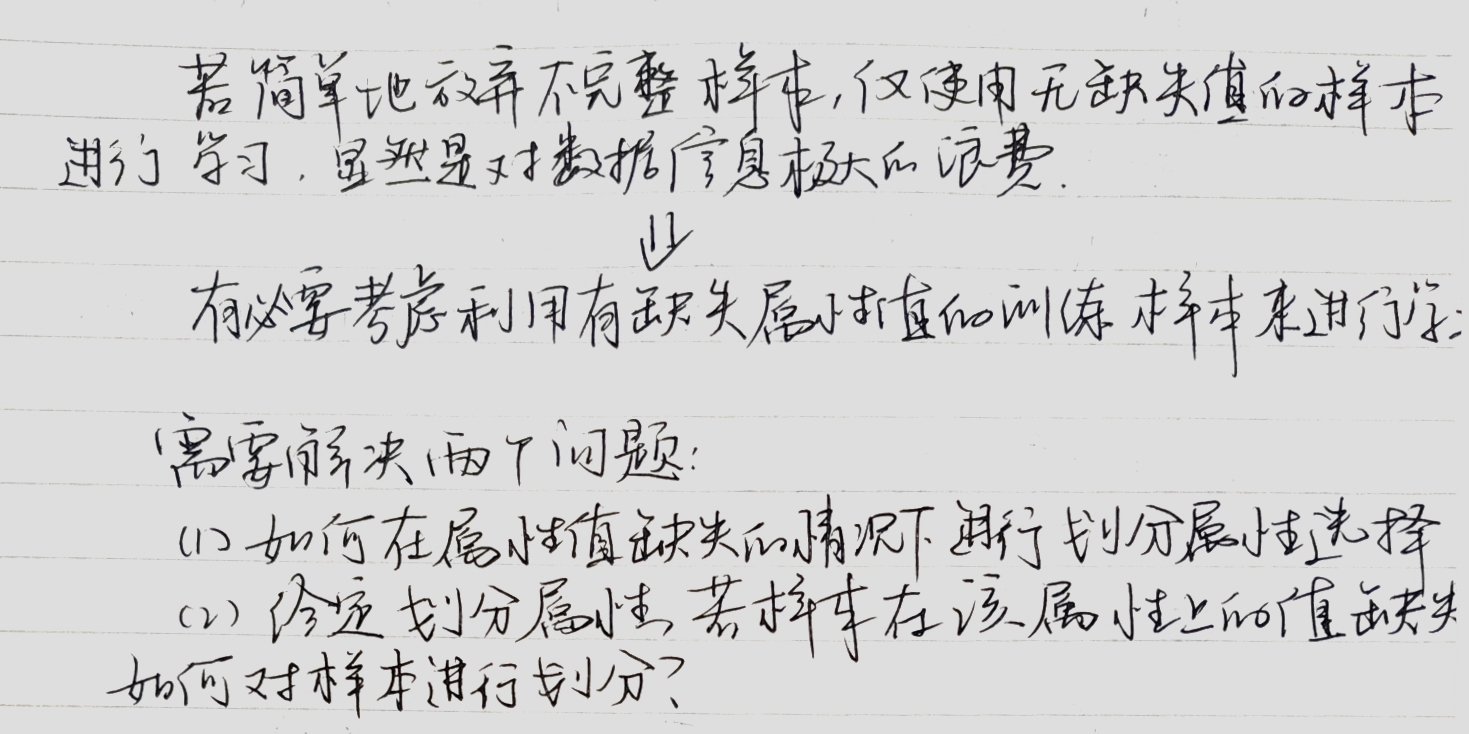 若简单地放弃不完整样本,仅使用无缺失值的样本
进行学习,显然是对数据信息极大的浪费.
⇓
有必要考虑利用有缺失属性值的训练样本来进行学
需要解决两个问题:
(1) 如何在属性值缺失的情况下进行划分属性选择
(2) 给定划分属性,若样本在该属性上的值缺失
如何对样本进行划分?